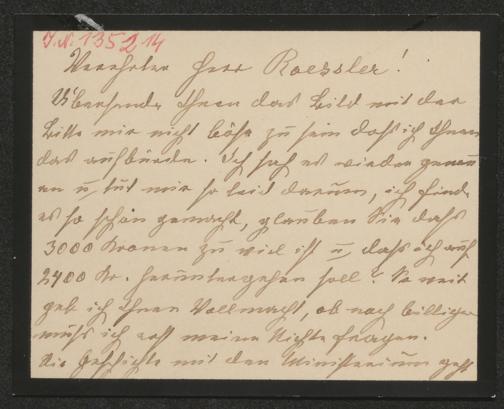 J.N. 135214
Verehrter Herr Roessler!
Übersende Ihnen das Bild mit der
Bitte mir nicht böse zu sein daß ich Ihnen
das aufbürde. Ich sah es wieder genau
an u. tut mir so leid darum, ich finde
es so schön gemacht, glauben Sie daß
3000 Kronen zu viel ist u. daß ich auf
2400 Kr. heruntergehen soll? So weit
geb ich Ihnen Vollmacht, ob noch billiger
muß ich erst meine Nichte fragen.
Die Geschichte mit dem Ministerium geht